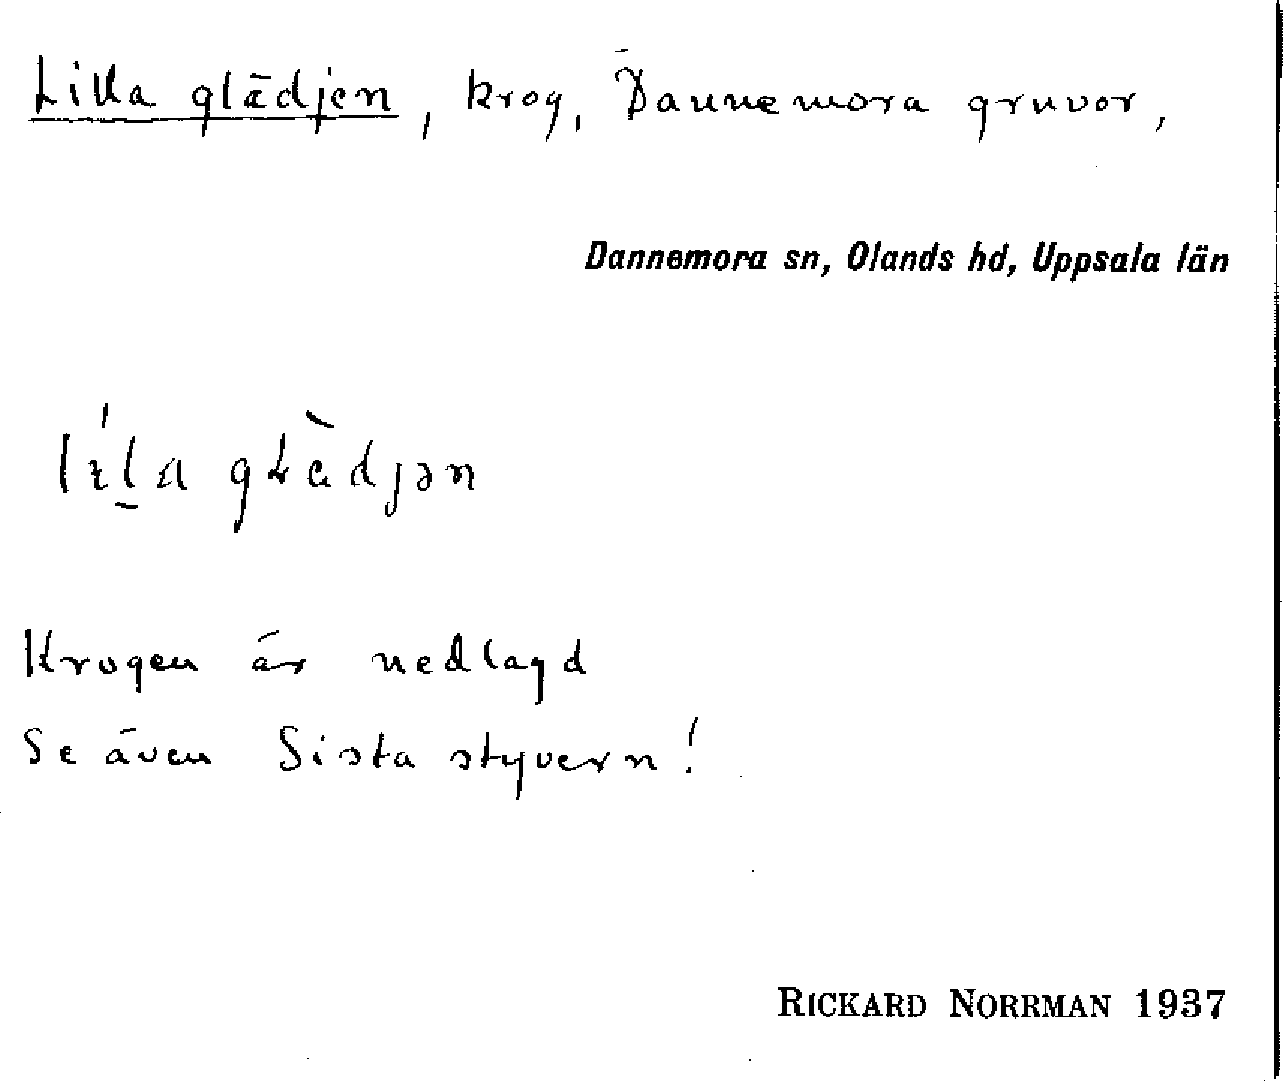 Lilla glädjen, krog, Dannemora gruvor,
Dannemora sn, Olands hd, Uppsala län
Krogen är nedlagd
Se även Sista styvern!
RICKARD NORRMAN 1937